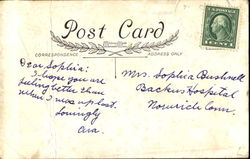 Post Card
CORRESPONDENCE
ADDRESS ONLY
Dear Sophia:
I hope you are
feeling better than
when I was up last.
Lovingly
Ava.
Mrs. Sophia Bushnell
Backus Hospital
Norwich Conn.